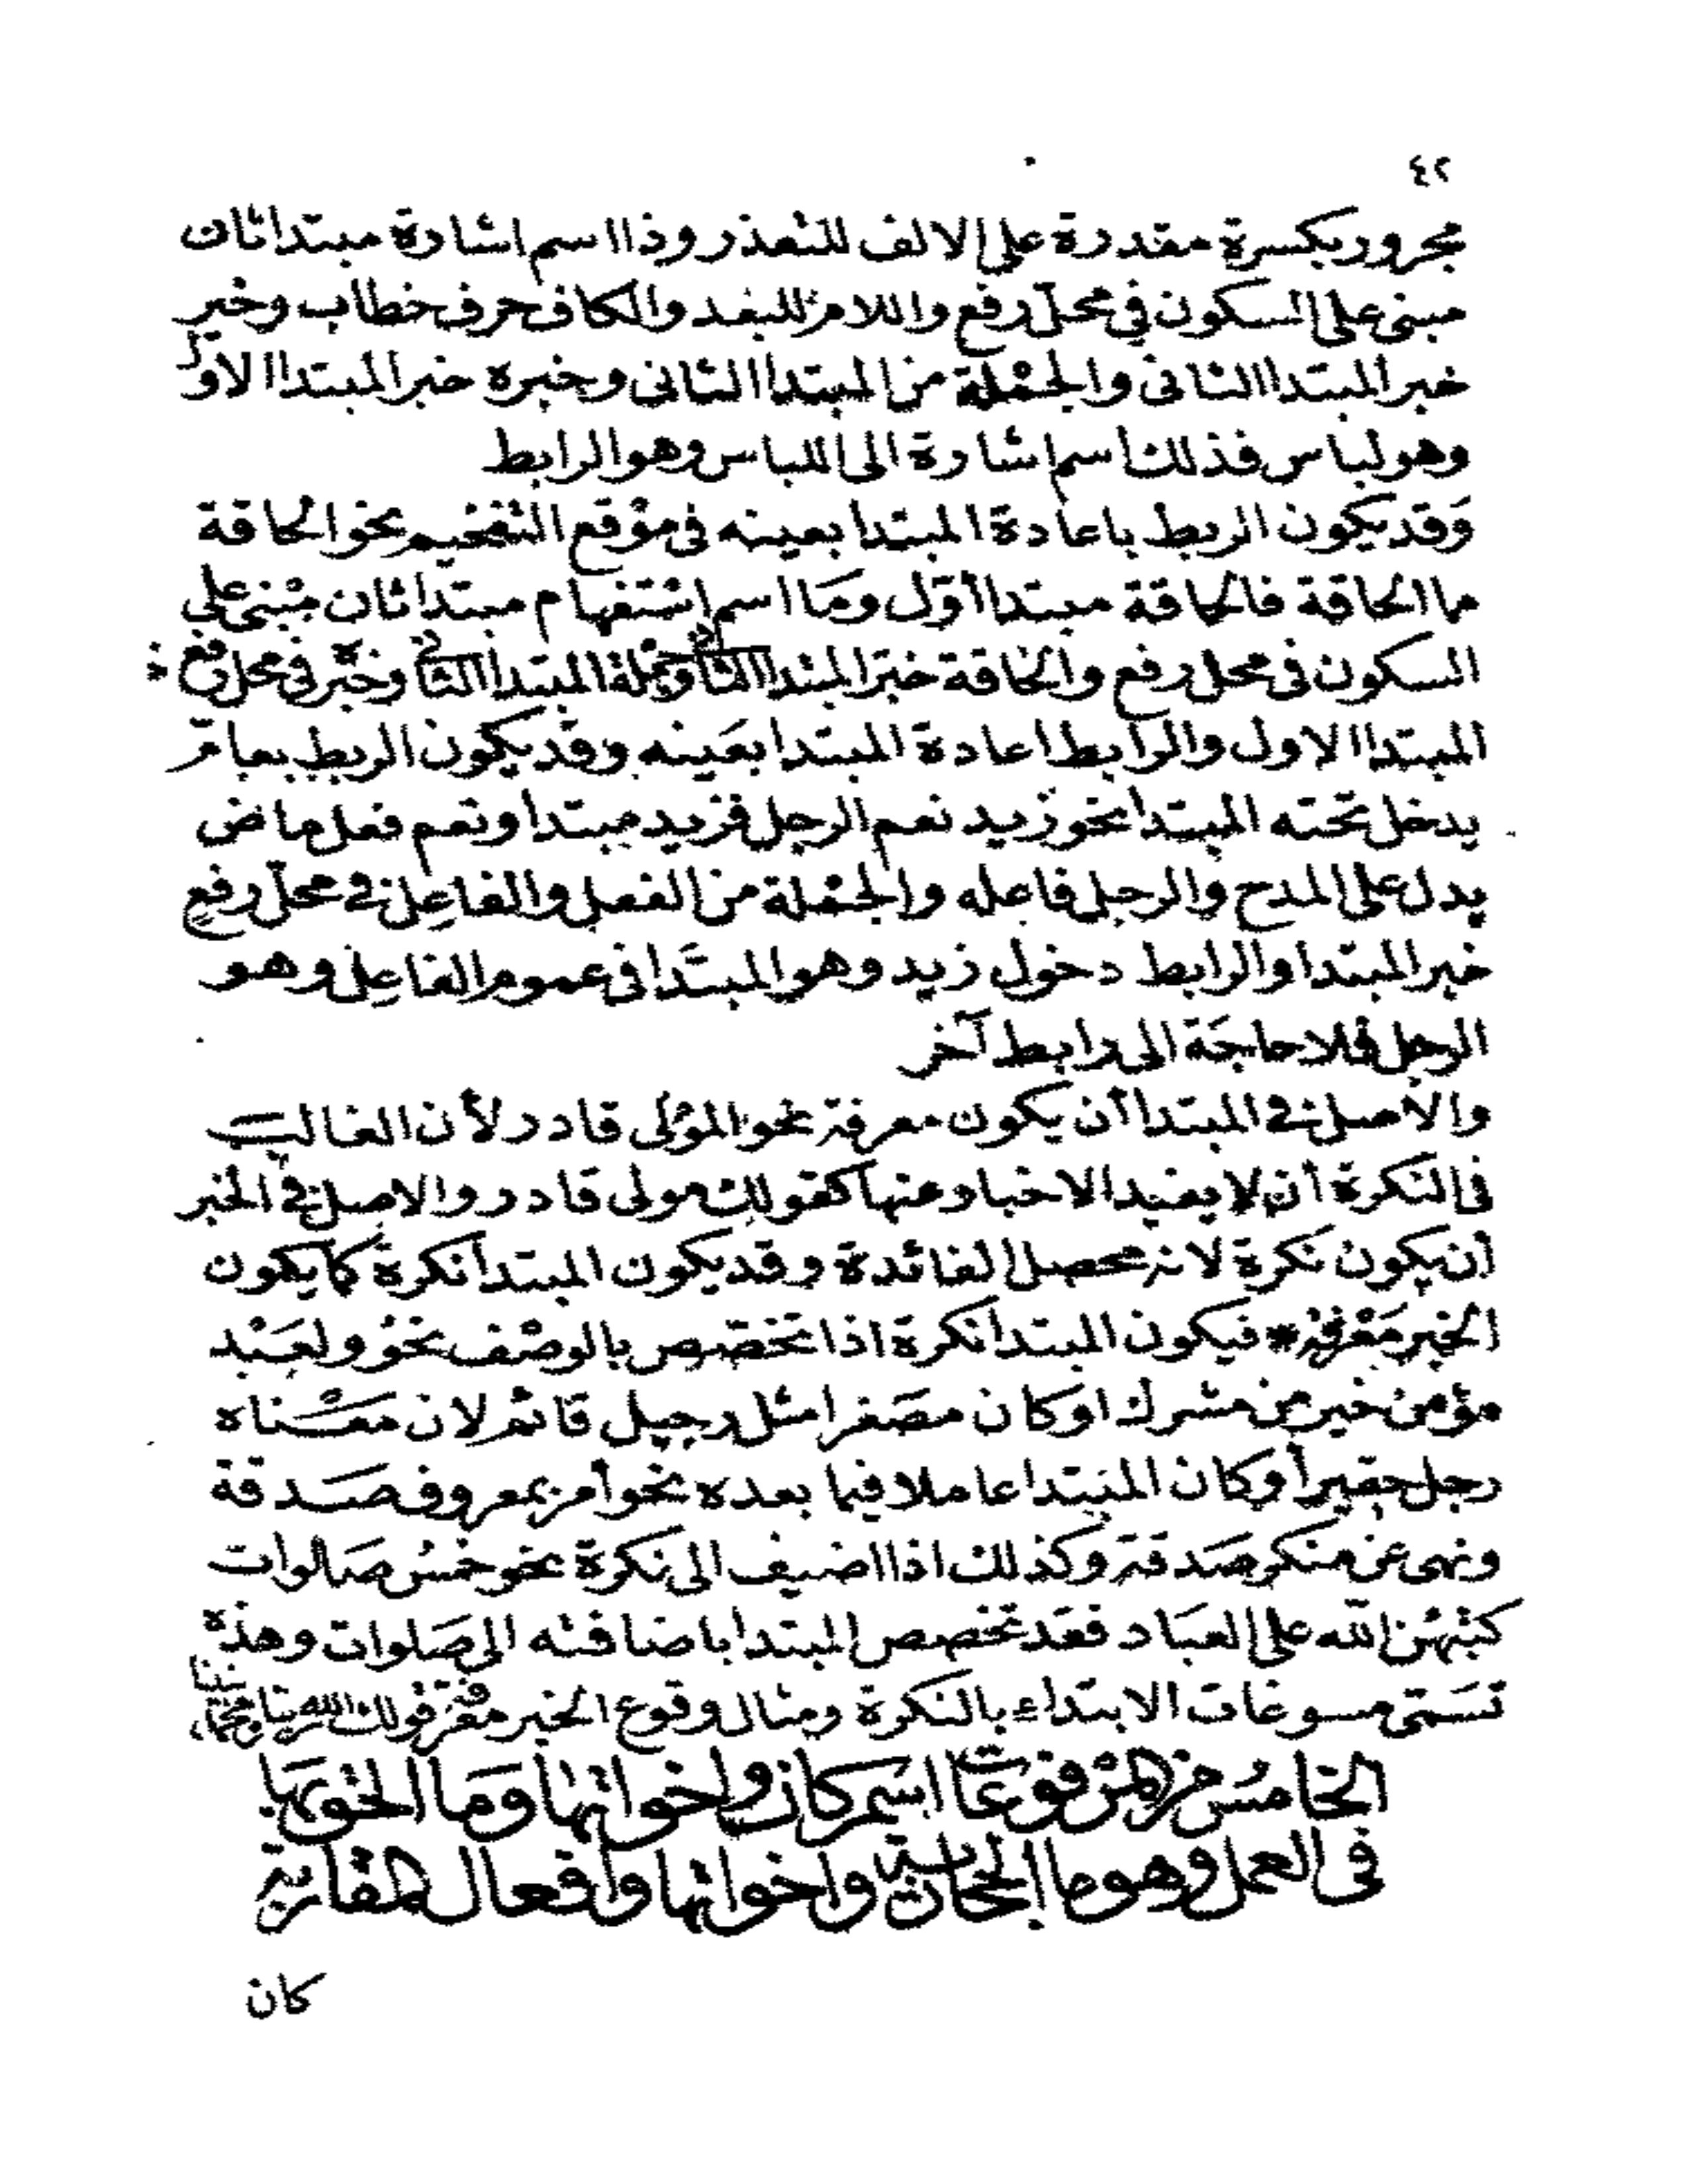 ٤٢
مجرور بكسرة مقدرة على الالف للتعذر وذا اسم اشارة مبتدا ثان
مبنى على السكون فى محلّ رفع واللام للبعد والكاف حرف خطاب وخير
خبر المبتدا الثانى والجملة من المبتدا الثانى وخبره خبر المبتدا الاول
وهو لباس فذلك اسم اشارة الى اللباس وهو الرابط
وَقد يكون الربط باعادة المبتدا بعينه فى موْقع التفخيم نحو الحاقة
ما الحاقة فالحاقة مبتدا أوّل ومَا اسم اسْتفهام مبتدا ثان مبْنى على
السكون فى محل رفع والحاقة خبر المبتدا الثانى وجملة المبتدا الثانى وخبره فى محل رفع خبر
المبتدا الاول والرابط اعادة المبتدا بعَينه وقد يكون الربط بعامّ
يدخل تحته المبتدا نحو زيد نعم الرجل فزيد مبتدا ونعم فعل ماض
يدل على المدح والرجل فاعله والجمْلة من الفعل والفاعِل فى محلّ رفع
خبر المبتدا والرابط دخول زيد وهو المبتَدا فى عموم الفاعِل وهو
الرجل فلا حاجَة الى رابط آخر
والأصل فى المبتدا أن يكون معرفة نحو المؤلى قادر لأن الغالب
فى النكرة أن لا يفيد الاخبار عنها كقولك مولى قادر والاصل فى الخبر
أن يكون نكرة لانه محصل الفائدة وقد يكون المبتدأ نكرة كما يكون
الخبر مَعْرفة * فيكون المبتدأ نكرة اذا تخصّص بالوصْف نحو ولعَبْد
مؤمن خير من مشرك او كان مصَغرا مثل رجيل قائم لان معْناه
رجل حقير أو كان المبتدا عاملا فيما بعده نحو أمر بمعروف صَدقة
ونهى عن منكر صَدقة وكذلك اذا اضيف الى نكرة نحو خمسُ صَلوات
كتبهُن الله على العبَاد فقد تخصص المبتدا باضافته الى صَلوات وهذه
تسَمّى مسوغات الابتداء بالنكرة ومثال وقوع الخبر معرفة قولك الله ربنا ومحمد نبينا
الخامسُ من المرْفوعَات اسْم كان واخواتها وَما الحق بهَا
فى العمل وهو ما الحجازية واخواتها وافعال المقاربة
كان